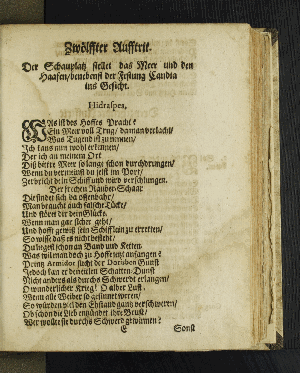 Zwölffter Aufftrit.
Der Schauplatz stellet das Meer und den
Haafen/benebenst der Festung Candia
ins Gesicht.
Hidraspes.
WAs ist des Hoffes Pracht?
Ein Meer voll Trug/ da man verlacht/
Was Tugend ist zu nennen/
Ich kans nun wohl erkennen/
Der ich an meinem Ort
Diß bittre Meer so lange schon durchdrungen/
Wenn du vermeinst du seist im Port/
Zerbricht dein Schiff und wird verschlungen.
Der frechen Rauber-Schaar
Die findet sich da offenbahr/
Man braucht auch falsche Lücke/
Und stöhrt dir dein Glücke.
Wenn man gar sicher geht/
Und hofft gewiß sein Schifflein zu erretten/
So wisse daß es nicht besteht/
Du liegest schon an Band und Ketten.
Was will man doch zu Hoffe jetzt anfangen?
Prinz Armidor sucht der Doriden Gunst
Jedoch kan er den eitlen Schatten-Dunst
Nicht anders als durchs Schwerdt erlangen/
O wunderlicher Krieg! O alber Lust.
Wenn alle Weiber so gesinnet weren/
So würden viel den Ehstand ganz verschweren/
Ob schon die Lieb entzündet ihre Brust/
Wer wolte sie durchs Schwerd gewinnen?
E Sonst